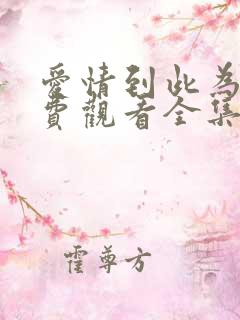 愛情到此為
費觀看全集
霍尊方